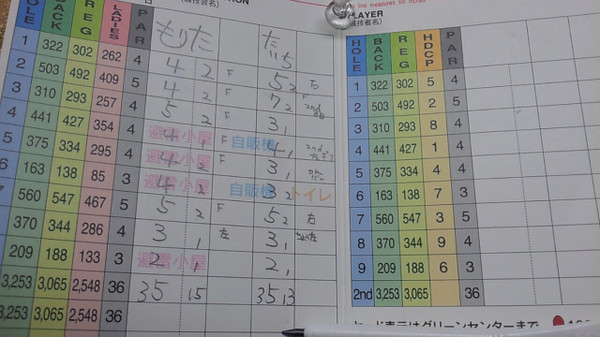 (競技者名)
HOLE BACK REG LADIES PAR もりた だいち
1 322 302 262 4 4 2 F 5 2
2 503 492 409 5 4 2 7 2
3 310 293 257 4 5 2 F 3 1
4 441 427 354 4 避雷小屋 4 1 F 自販機 4 1
5 375 334 295 4 避雷小屋 4 2 F 3 1
6 163 138 85 3 避雷小屋 4 2 自販機 トイレ 3 2
7 560 547 467 5 5 2 F 5 2 右
8 370 344 286 4 3 1 左 3 1
9 209 188 133 3 避雷小屋 2 1 2 1
3,253 3,065 2,548 36 35 15 35 13
3,253 3,065 2,548 36
PLAYER
(競技者名)
HOLE BACK REG HDCP PAR
1 322 302 5 4
2 503 492 2 5
3 310 293 8 4
4 441 427 1 4
5 375 334 4 4
6 163 138 7 3
7 560 547 3 5
8 370 344 9 4
9 209 188 6 3
2nd 3,253 3,065 36
ード表示はグリーンセンターまで